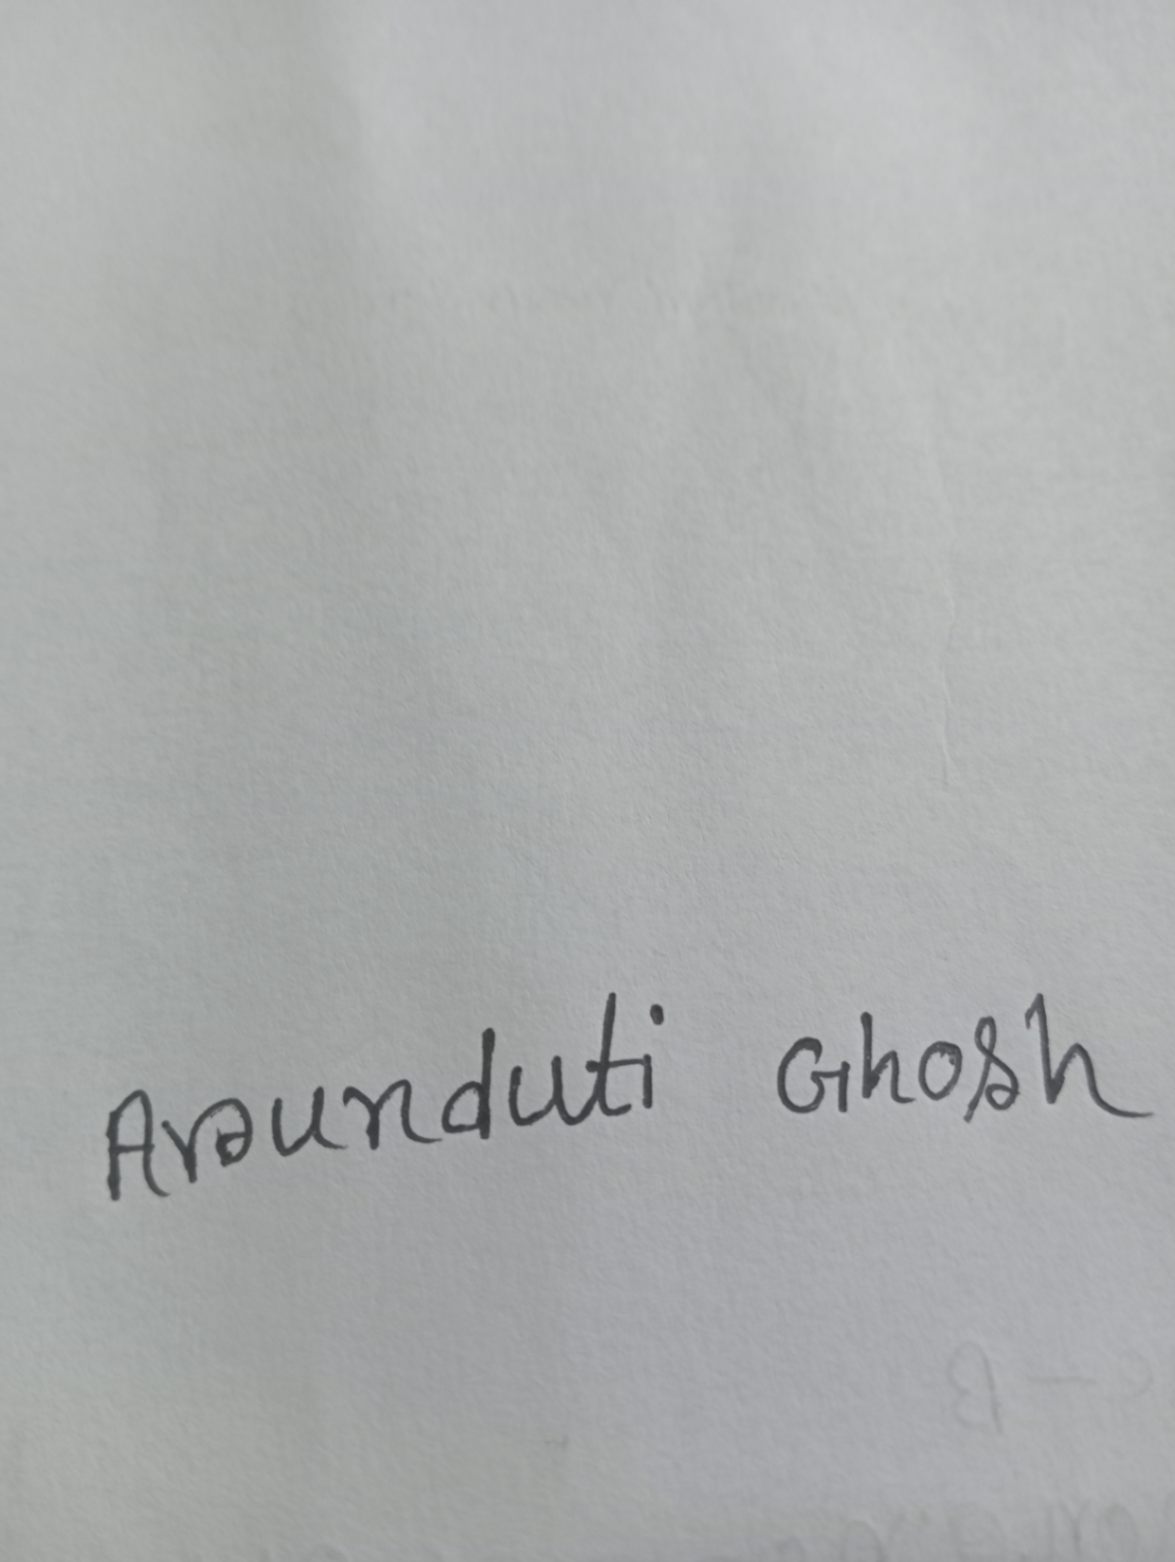 Arounduti Ghosh